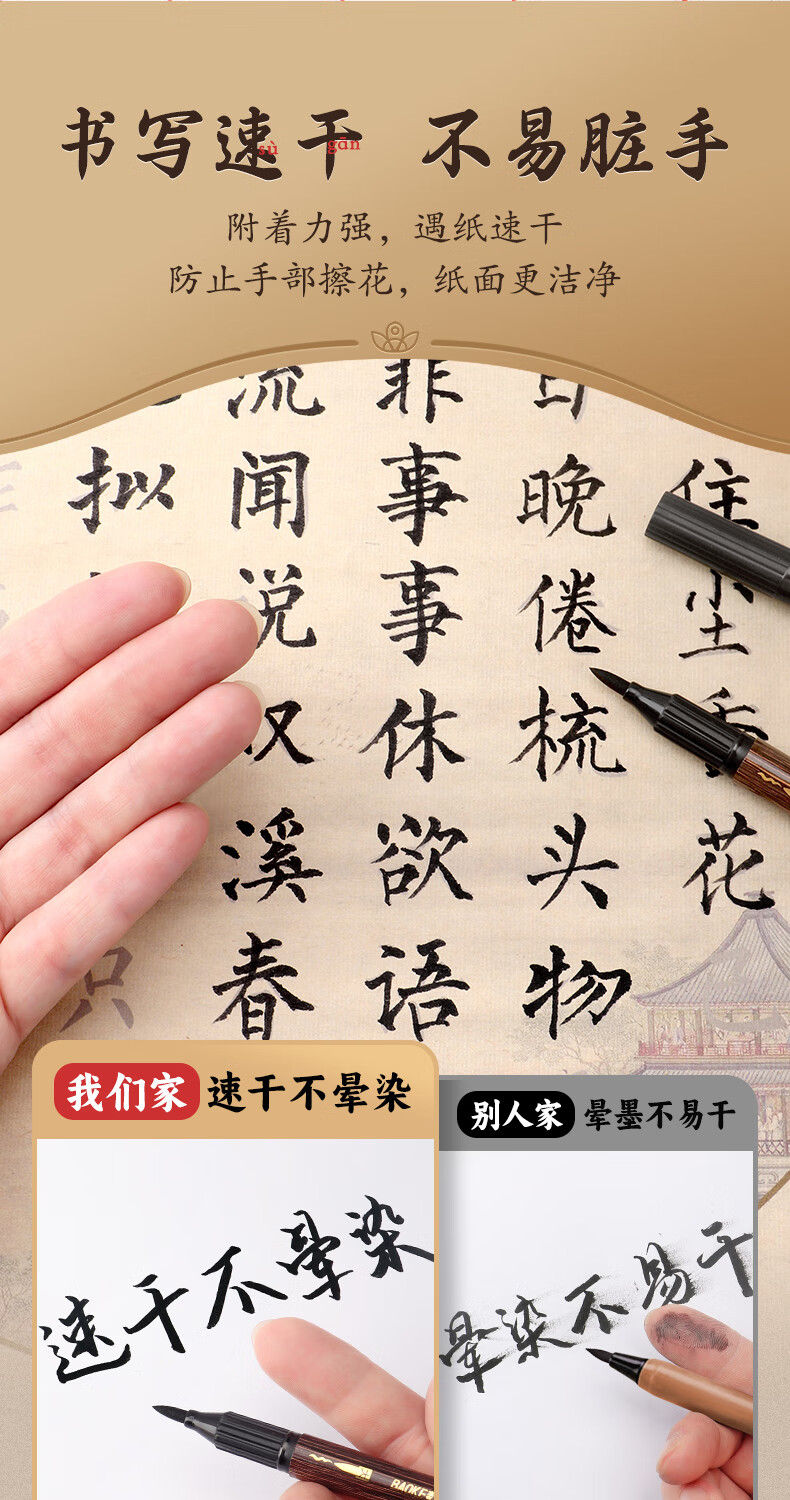 书写速干 不易脏手
sù gān
附着力强，遇纸速干
防止手部擦花，纸面更洁净
住尘香花
日晚倦梳头物
非事事休欲语
流闻说双溪春
拟
只
我们家 速干不晕染
别人家 晕墨不易干
速干不晕染
晕染不易干
BAOKE